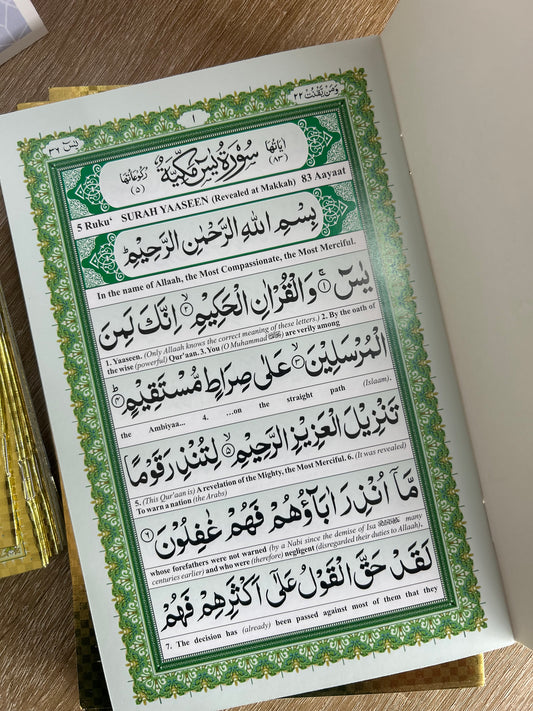 وَمَنْ يَّقْنُتْ ٢٢
١
يٰسٓ ٣٦
اٰيَاتُهَا (٨٣) سُوْرَةُ يٰسٓ مَكِّيَّةٌ رُكُوْعَاتُهَا (٥)
5 Ruku‘ SURAH YAASEEN (Revealed at Makkah) 83 Aayaat
بِسْمِ اللّٰهِ الرَّحْمٰنِ الرَّحِيْمِ
In the name of Allaah, the Most Compassionate, the Most Merciful.
يٰسٓ ۚ ﴿١﴾ وَالْقُرْاٰنِ الْحَكِيْمِ ۙ ﴿٢﴾ اِنَّكَ لَمِنَ
1. Yaaseen. (Only Allaah knows the correct meaning of these letters.) 2. By the oath of
the wise (powerful) Qur'aan. 3. You (O Muhammad ﷺ) are verily among
الْمُرْسَلِيْنَ ۙ ﴿٣﴾ عَلٰى صِرَاطٍ مُّسْتَقِيْمٍ ؕ ﴿٤﴾
the Ambiyaa... 4. ...on the straight path (Islaam).
تَنْزِيْلَ الْعَزِيْزِ الرَّحِيْمِ ۙ ﴿٥﴾ لِتُنْذِرَ قَوْمًا
5. (This Qur'aan is) A revelation of the Mighty, the Most Merciful. 6. (It was revealed)
To warn a nation (the Arabs)
مَّآ اُنْذِرَ اٰبَآؤُهُمْ فَهُمْ غٰفِلُوْنَ ﴿٦﴾
whose forefathers were not warned (by a Nabi since the demise of Isa many
centuries earlier) and who were (therefore) negligent (disregarded their duties to Allaah).
لَقَدْ حَقَّ الْقَوْلُ عَلٰٓى اَكْثَرِهِمْ فَهُمْ
7. The decision has (already) been passed against most of them that they